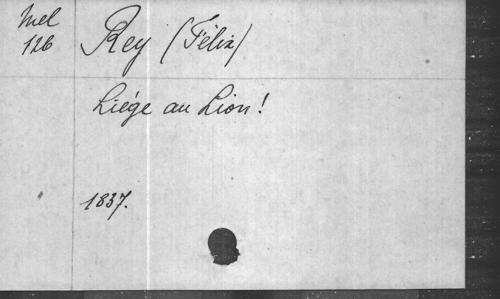 Mel
126
Rey (Félix)
Liége au Lion!
1837.